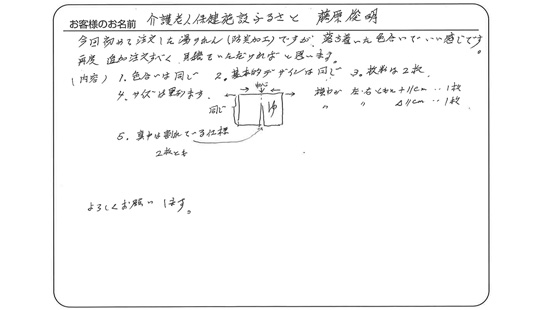 お客様のお名前 介護老人保健施設ふるさと 藤原俊明
今回初めて注文した湯のれん(防炎加工)ですが、落ち着いた色合いでいい感じです。
再度 追加注文すべく 見積でいただければと思います。
(内容) 1. 色合いは同じ 2. 基本的デザインは同じ 3. 枚数は2枚
4. サイズは異ります.
同じ
ゆ
横巾が 左右 +11cm ‥ 1枚
〃 〃 △11cm ‥ 1枚
5. 真中は割れている仕様
2枚とも
よろしくお願いします。